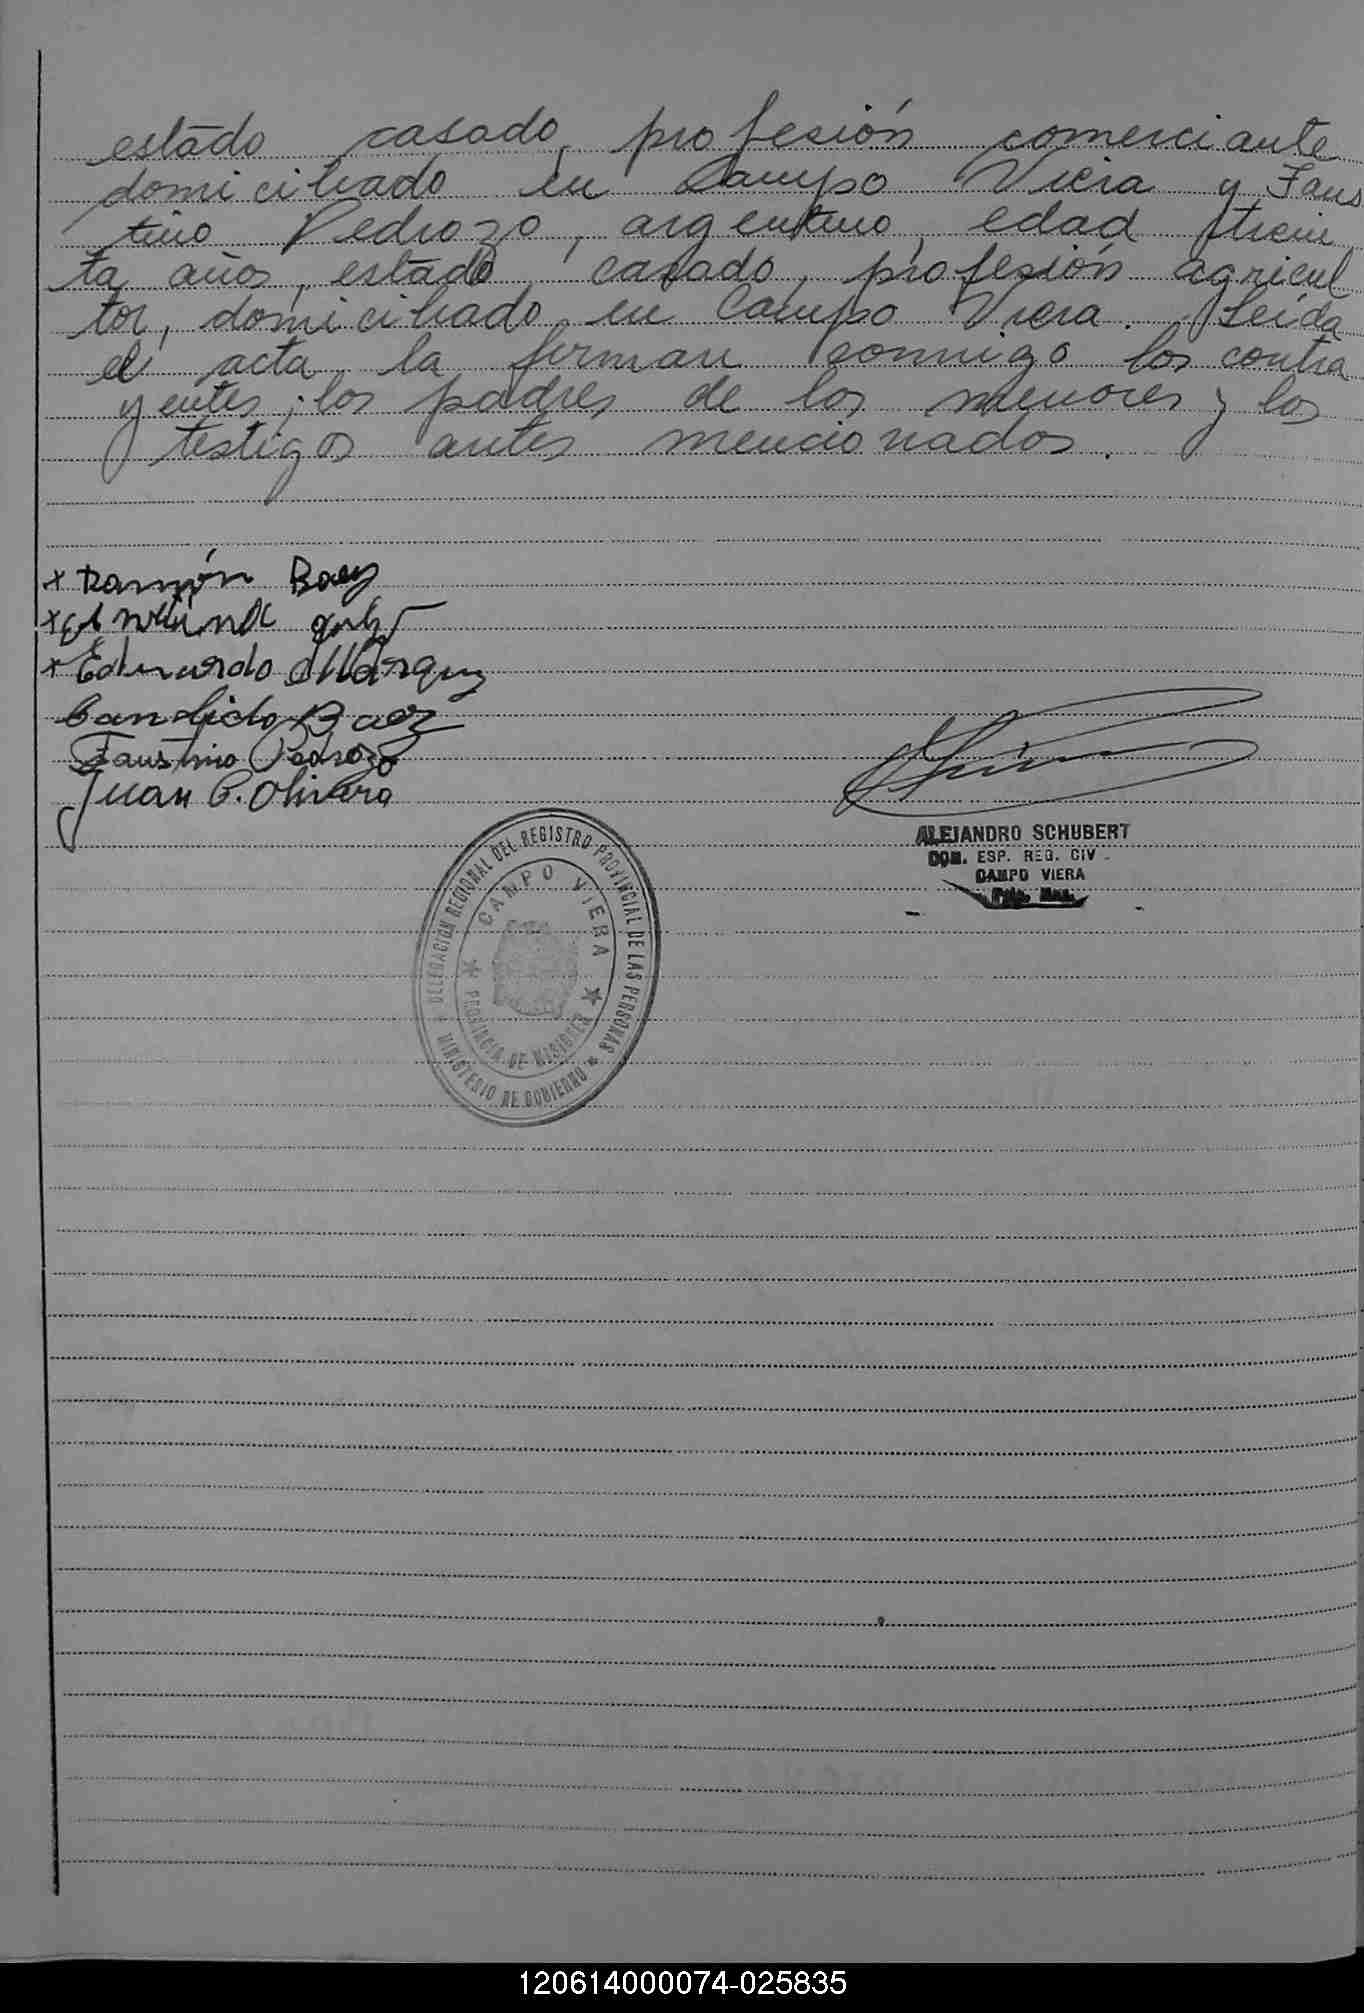 estado casado, profesión comerciante
domiciliado en Campo Viera y Faus
tino Pedrozo, argentino, edad trein
ta años, estado casado, profesión agricul
tor, domiciliado en Campo Viera. Leída
el acta la firman conmigo los contra
yentes, los padres de los menores y los
testigos antes mencionados.
x Ramón Baez
x
x Eduardo Marquez
Candido Baez
Faustino Pedrozo
Juan C. Olivera
ALEJANDRO SCHUBERT
ESP. REG. CIV.
CAMPO VIERA
DELEGACIÓN REGIONAL DEL REGISTRO PROVINCIAL DE LAS PERSONAS
MINISTERIO DE GOBIERNO
CAMPO VIERA
PROVINCIA DE MISIONES
120614000074-025835